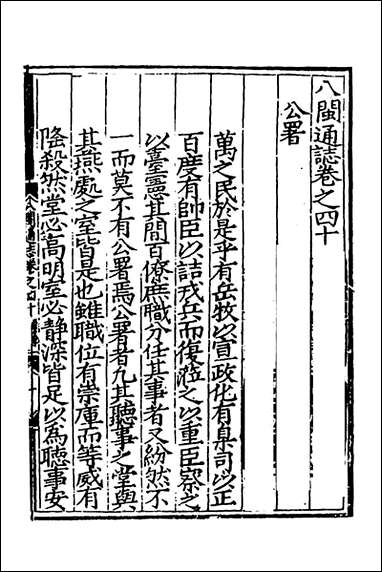 八閩通誌卷之四十
公署
萬之民於是乎有岳牧以宣政化有臬司以正
百度有帥臣以詰戎兵而復涖之以重臣察之
以臺憲其間百僚庶職分任其事者又紛然不
一而莫不有公署焉公署者凡其聽事之堂與
其燕處之室皆是也雖職位有崇庳而等威有
隆殺然堂必高明室必靜深皆足以為聽事安
八閩通誌卷之四十